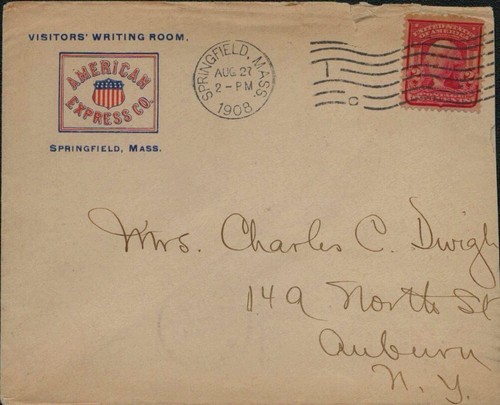 VISITORS' WRITING ROOM,
AMERICAN
EXPRESS CO.
SPRINGFIELD, MASS.
SPRINGFIELD, MASS.
AUG 27
2-PM
1908
1
C
UNITED STATES
OF AMERICA
Mrs. Charles C. Dwigh
149 North St
Auburn
N. Y.